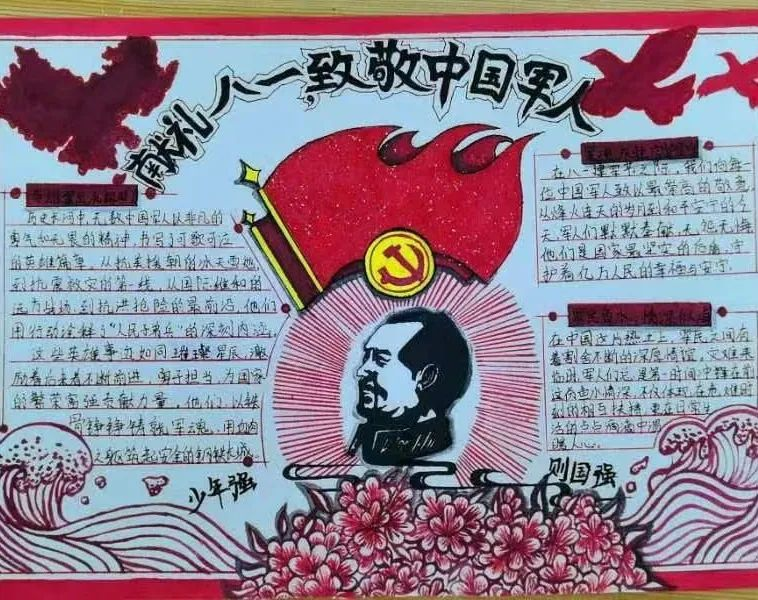 献礼八一,致敬中国军人
历史长河中,无数中国军人以非凡的
勇气和无畏的精神,书写了可歌可泣
的英雄篇章。从抗美援朝的冰天雪地,
到抗震救灾的第一线,从国际维和的
远方战场,到抗洪抢险的最前沿,他们
用行动诠释了"人民子弟兵"的深刻内涵。
这些英雄事迹如同璀璨星辰,激
励着后来者不断前进,勇于担当,为国家
的繁荣富强贡献力量。他们,以铁
骨铮铮铸就军魂,用血肉
之躯筑起安全的钢铁长城。
在八一建军节之际,我们向每一
位中国军人致以最崇高的敬意。
从烽火连天的岁月到和平安宁的今
天,军人们默默奉献,无怨无悔
他们是国家最坚实的后盾,守
护着亿万人民的幸福与安宁。
军民鱼水,情深似海
在中国这片热土上,军民之间有
着割舍不断的深厚情谊。灾难来
临时,军人们总是第一时间冲锋在前
这份血水情深,不仅体现在危难时
刻的相互扶持,更在日常生
活的点点滴滴中温
暖人心。
少年强
则国强